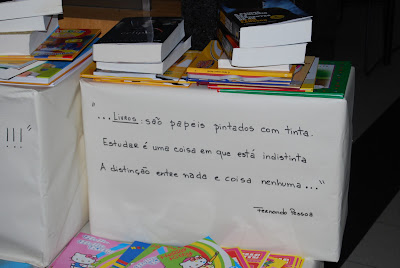 "...Livros: são papeis pintados com tinta.
Estudar é uma coisa em que está indistinta
A distinção entre nada e coisa nenhuma..."
Fernando Pessoa
!!!
Hello